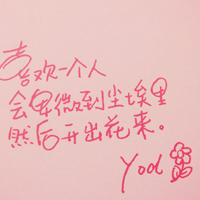 喜欢一个人
会卑微到尘埃里
然后开出花来。
yool